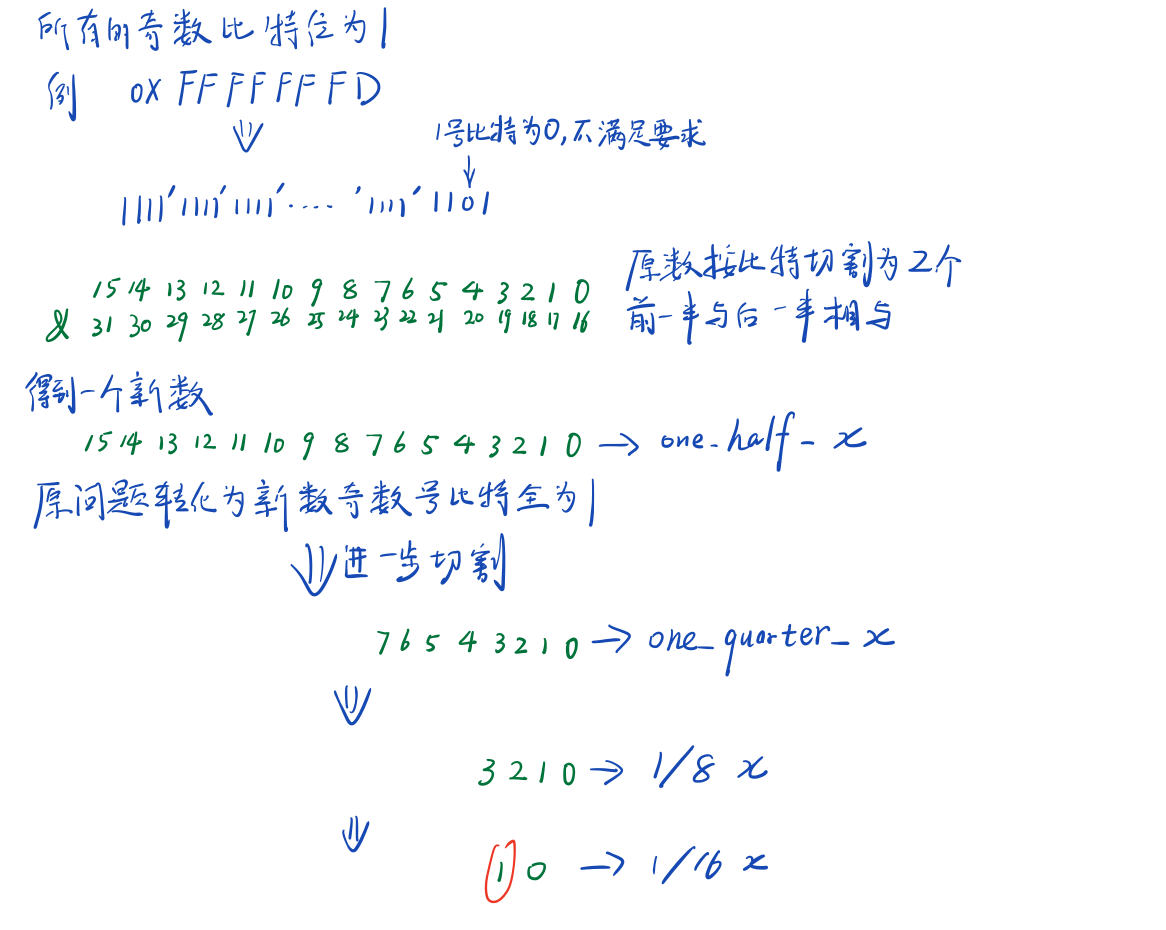 所有的奇数比特位为1
例 0X FFFFFFFD
1号比特为0,不满足要求
1111'1111'1111'.... '1111'1101
原数按比特切割为2个
15 14 13 12 11 10 9 8 7 6 5 4 3 2 1 0
前一半与后一半相与
& 31 30 29 28 27 26 25 24 23 22 21 20 19 18 17 16
得到一个新数
15 14 13 12 11 10 9 8 7 6 5 4 3 2 1 0 → one_half_x
原问题转化为新数奇数号比特全为1
进一步切割
7 6 5 4 3 2 1 0 → one_quarter_x
3 2 1 0 → 1/8 x
1 0 → 1/16 x